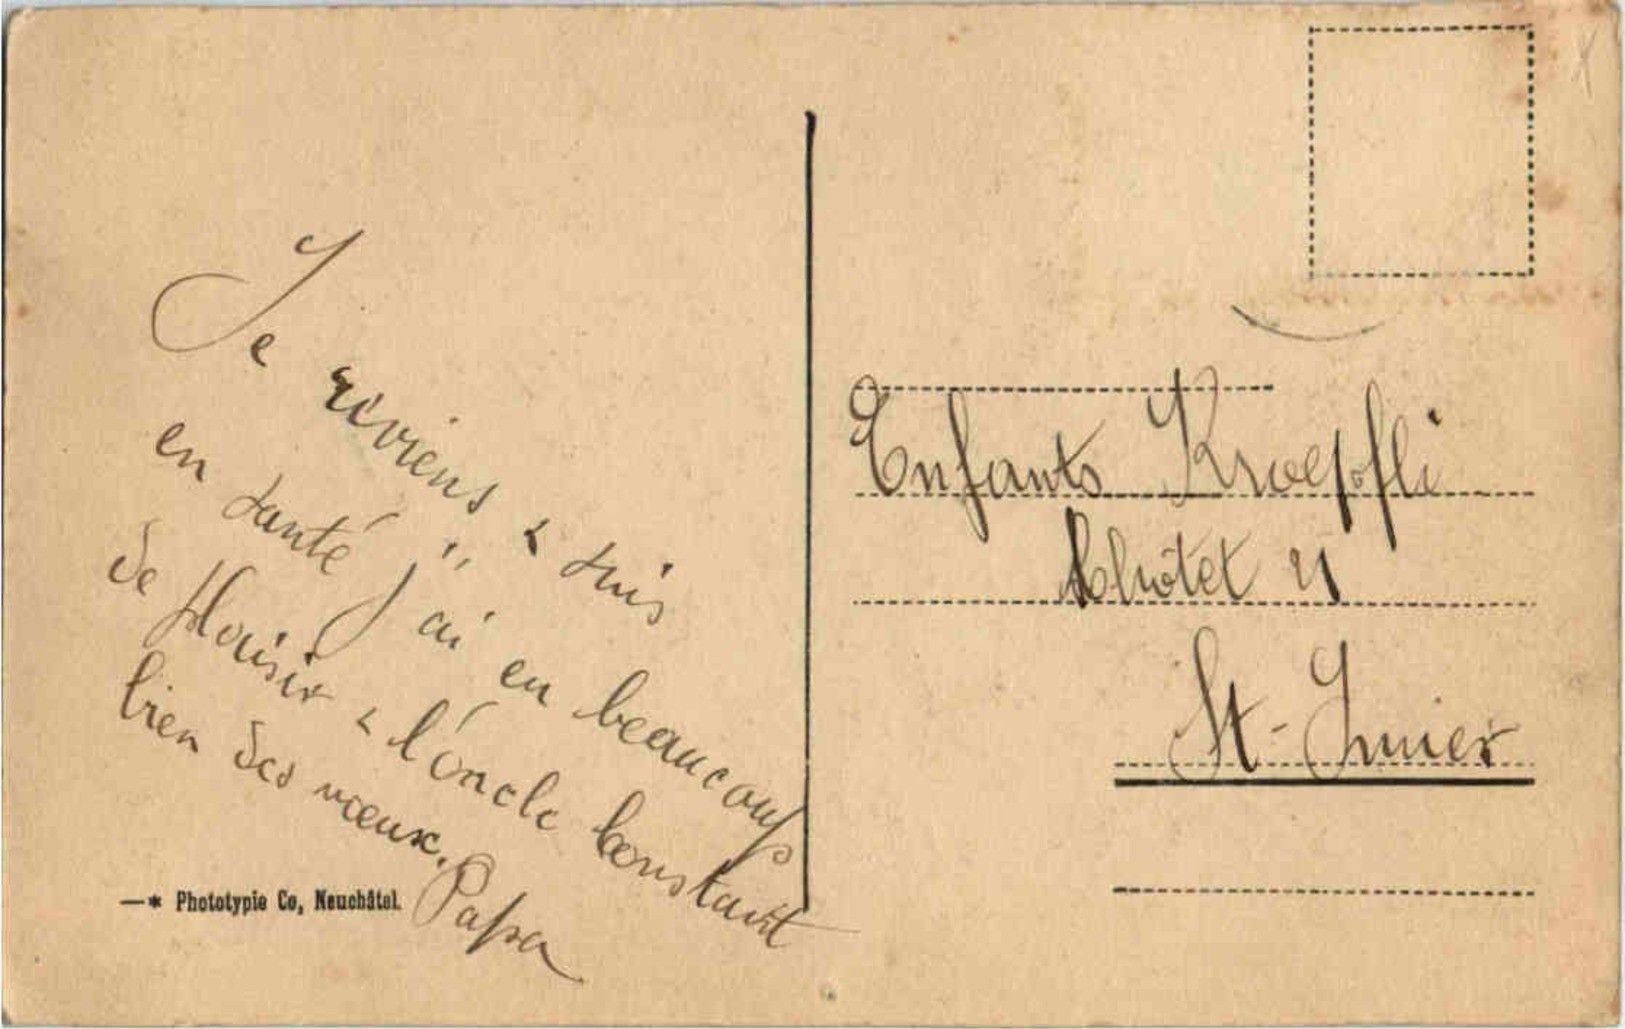 Je reviens & suis
en santé, j'ai eu beaucoup
de plaisir & l'oncle Constant
bien des vœux.
Papa
—* Phototypie Co, Neuchâtel.
Enfants Kroepfli
St-Imier